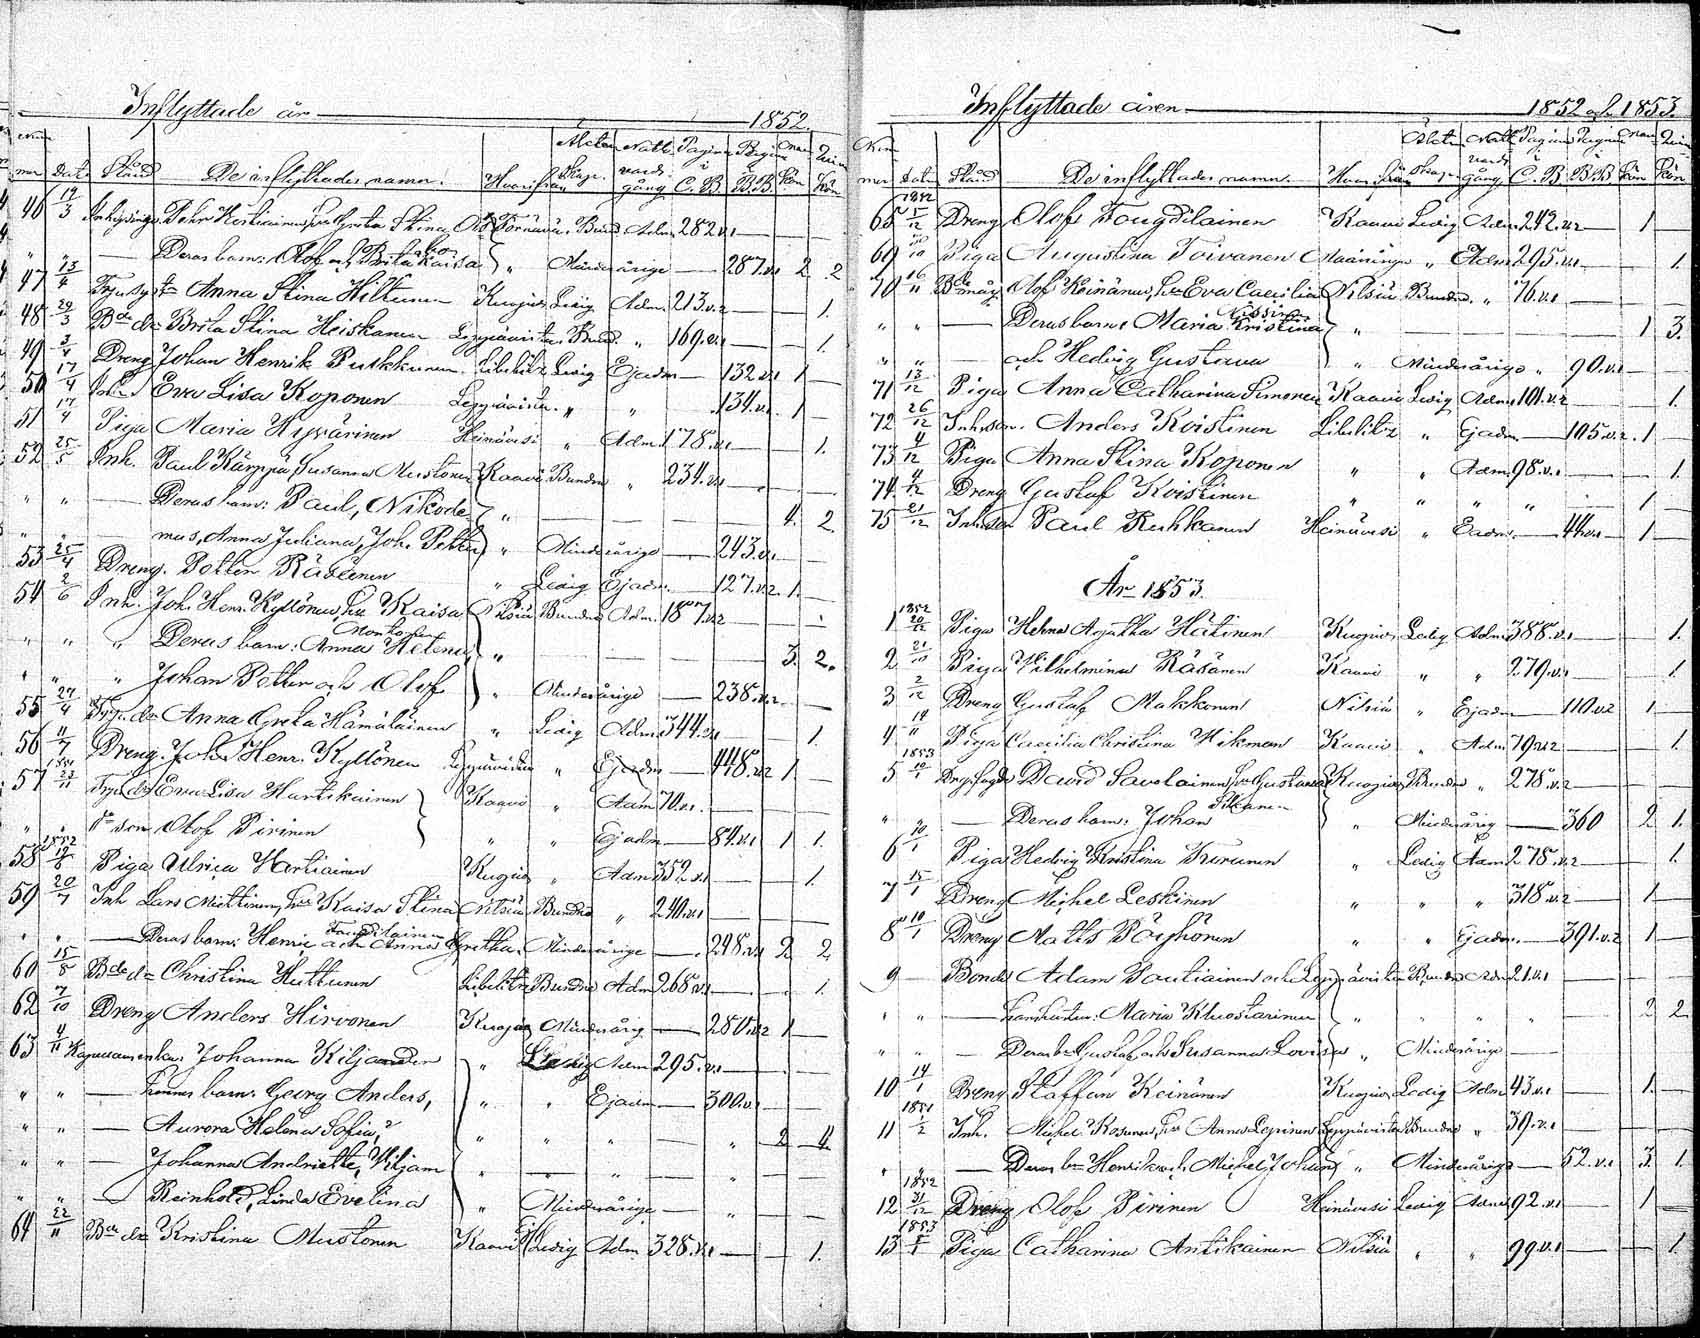 Inflyttade år 1852.
Num mer Dat. Stånd De inflyttades namn. Hvarifrån Äkten Skap. Nattvards gång Pagina i C.B. Pagina B.B. Man kön Qvin kön
46 19/3 Pehr Adm. 282.v.1
" " — Deras barn: Olof och Brita Kaisa " Minderårige — 287.v.1 2 2
47 13/4 Anna Stina Hiltunen Kuopio Ledig Adm. 213.v.2 — 1.
48 29/3 Bde dr Brita Stina Heiskanen Leppävirta " 169.v.1 — 1.
49 3/4 Dreng Johan Henrik Putkkunen Libelitz Ledig Ejadm — 132.v.1 1 —
50 17/4 Eva Lisa Koponen Leppävirta " " 134.v.1 — 1
51 17/4 Piga Maria Hyvärinen Heinävesi " Adm. 178.v.1 — 1.
52 25/5 Inh. Paul Kärppä, Susanna Mustonen Kaavi Bundne " 234.v.1 — —
" " — Deras barn: Paul, Nikode- " — — — 4. 2
" " mus, Anna Juliana, Joh. Petter " Minderårige — 243.v.1 —
53 25/4 Dreng. Petter Räsänen " Ledig Ejadm. — 127.v.2. 1. —
54 2/6 Inh. Joh. Henr. Kyllönen, hu Kaisa Nilsiä Bundne Adm. 187.v.2 —
Monkonen
" " " Deras barn: Anna Helena, " — — — 3. 2.
" " " Johan Petter och Olof " Minderårige — 238.v.2. —
55 27/4 dr Anna Greta Hämäläinen " Ledig Adm. 344.v.1 — 1.
56 11/7 Dreng. Joh. Henr. Kyllönen Leppävirta " Ejadm — 448.v.2 1 —
1851
57 23/11 Eva Lisa Hartikainen Kaavi " Adm 70.v.1. — —
" " son Olof Pirinen " " Ejadm — 84.v.1 1 1.
1852
58 19/6 Piga Ulrica Hartikainen Kuopio " Adm 352.v.1 — 1.
59 20/7 Inh Lars Miettinen, hu Kaisa Stina Nilsiä Bundne " 240.v.1 — —
" " — Deras barn: Henric och Anna Gretha. Minderårige — 248.v.1 2 2
60 15/8 Bde dr Christina Huttunen Libelitz Bundne Adm 268.v.1 — 1.
62 7/10 Dreng Anders Hirvonen Kuopio Minderårig — 280.v.2 1 —
63 4/11 Johanna Kiljander " Ledig Adm 295.v.1 — —
" " — hennes barn: Georg Anders, " " Ejadm — 300.v.1 — —
" " — Aurora Helena Sofia, " " " — " 2 4.
" " — Johanna Andriette, Viljam " — " — " —
" " — Reinhold, Linda Evelina " Minderårige — " —
64 22/11 Bde dr Kristina Mustonen Kaavi Ledig Adm. 328.v.1 — 1.
Inflyttade åren 1852 och 1853.
Num mer Dat. Stånd De inflyttades namn. Hvarifrån Äkten skap. Nattvards gång Pagina i C.B. Pagina i B.B. Man kön Qvin kön
1852
65 5/12 Dreng Olof Fougdilainen Kaavi Ledig Adm 242.v.2 — 1 —
69 20/10 Piga Augustina Toivanen Maaninga " Adm 295.v.1 — 1.
70 16/11 Bdemåg Olof Keinänen, hu Eva Caecilia Nilsiä Bundne " 76.v.1 — —
Nissinen
" " — Deras barn: Maria Kristina " — — — 1 3.
" " — och Hedvig Gustava " Minderårige " 90.v.1 —
71 13/12 Piga Anna Catharina Simonen Kaavi Ledig Adm 101.v.2 — 1.
72 26/12 Inh.son. Anders Koistinen Libelitz " Ejadm. — 105.v.2. 1 —
73 4/12 Piga Anna Stina Koponen " " Adm. 98.v.1 — 1.
74. 4/12 Dreng Gustaf Koistinen " " " " 1 —
75 21/12 Inh.son Paul Ruhkanen Heinävesi " Ejadm. — 44.v.1 1 —
År 1853.
1852
1 20/12 Piga Helena Agatha Hätinen Kuopio Ledig Adm 388.v.1 — 1.
2 21/10 Piga Vilhelmina Räsänen Kaavi " " 279.v.1 — 1.
3 2/12 Dreng Gustaf Makkonen Nilsiä " Ejadm — 110.v.2 1 —
4 14/11 Piga Caecilia Christina Hikman Kaavi " Adm 79.v.2 — 1.
1853
5 10/1 David Savolainen, hu Gustava Kuopio Bundne " 278.v.2 —
" " — Deras barn: Johan " Minderårig — 360 2 1.
6 10/1 Piga Hedvig Kristina Kurunen " Ledig Adm 278.v.2 — 1.
7 15/1 Dreng Michel Leskinen " " " 318.v.2 — 1 —
8 10/1 Dreng Matts Pöyhönen " " Ejadm. — 391.v.2 1 —
9 — Bonde Adam Tautiainen och Leppävirta Bundne Adm 21.v.1 —
" " — hustru: Maria Kuostarinen " " " " — 2 2
" " — Deras bn Gustaf och Susanna Lovisa " Minderårige —
10 14/1 Dreng Staffan Keinänen Kuopio Ledig Adm 43.v.1 — 1. —
1851
11 1/2 Inh. Michel Kosunen, hu Anna Lepinen Leppävirta Bundne " 39.v.1 —
" " — Deras bn Henrik och Michel Johan " Minderårige — 52.v.1 3. 1.
1852
12 31/12 Dreng Olof Pirinen Heinävesi Ledig Adm 92.v.1 — 1 —
1853
13 5/1 Piga Catharina Antikainen Nilsiä " " 99.v.1 — 1.